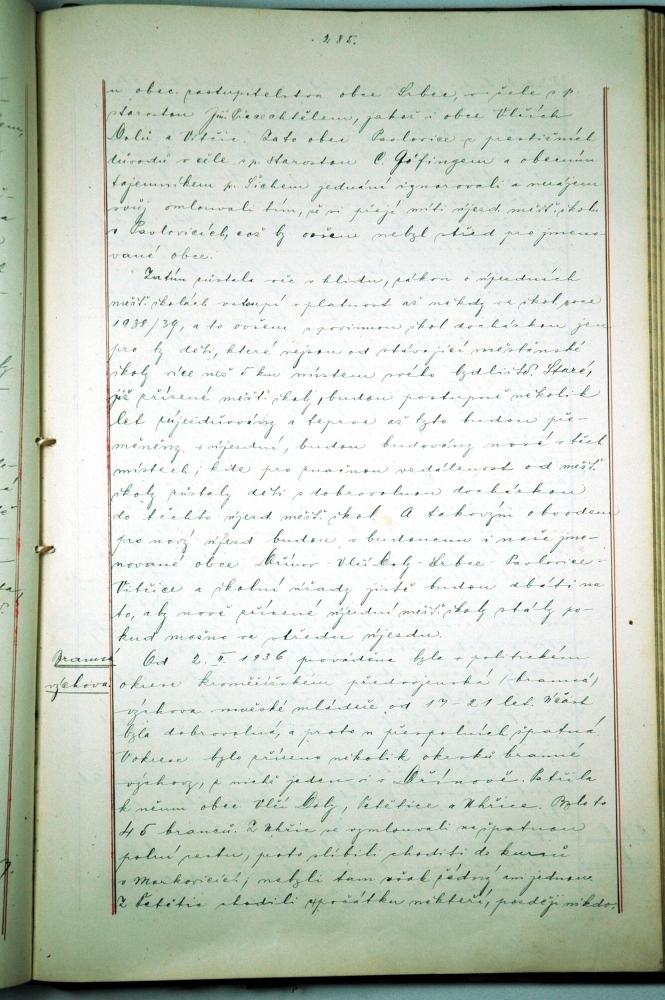 285.
u obec. zastupitelstva obce Srbce, v čele s p.
starostou Jos. Vacechtělem, jakož i obce Vlčích
Dolů a Vitčic. Zato obec Pavlovice z prestižních
důvodů v čele s p. starostou C. Göfingem a obecním
tajemníkem p. Síchem jednání ignorovali a nezájem
svůj omlouvali tím, že si přejí míti újezd. měšť. školu
v Pavlovicích, což by ovšem nebyl střed pro jmeno-
vané obce.
Zatím zůstala věc v klidu, zákon o újezdních
měšť. školách vstoupí v platnost až někdy ve škol. roce
1938/39, a to ovšem s povinnou škol. docházkou jen
pro ty děti, které nejsou od stávající měšťanské
školy více než 5 km místem svého bydliště. Staré,
již zřízené měšť. školy, budou postupně několik
let zújezdňovány a teprve až tyto budou pře-
měněny v újezdní, budou budovány nové v těch
místech, kde pro značnou vzdálenost od měšť.
školy zůstaly děti s dobrovolnou docházkou
do těchto újezd. měšť. škol. A takovým obvodem
pro nový újezd budou v budoucnu i naše jme-
nované obce Dřínov - Vlčí Doly - Srbce - Pavlovice -
Vitčice a školní úřady jistě budou dbáti na
to, aby nově zřízené újezdní měšť. školy stály po-
kud možno ve středu újezdu.
Branná Od 2. II. 1936 prováděna byla v politickém
výchova. okrese kroměřížském předvojenská (branná)
výchova mužské mládeže od 17-21 let. Účast
byla dobrovolná, a proto u přespolních špatná.
V okrese bylo zřízeno několik okrsků branné
výchovy, z nichž jeden i v Dřínově. Patřila
k němu obec Vlčí Doly, Cetětice a Uhřice. Bylo to
45 branců. Z Uhřic se vymlouvali na špatnou
polní cestu, proto slíbili choditi do kursů
v Morkovicích, nebyli tam však žádný ani jednou.
Z Cetětic chodili zpočátku někteří, později nikdo.